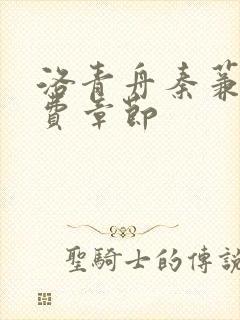 洛青舟秦蒹
費章節
聖騎士的傳說